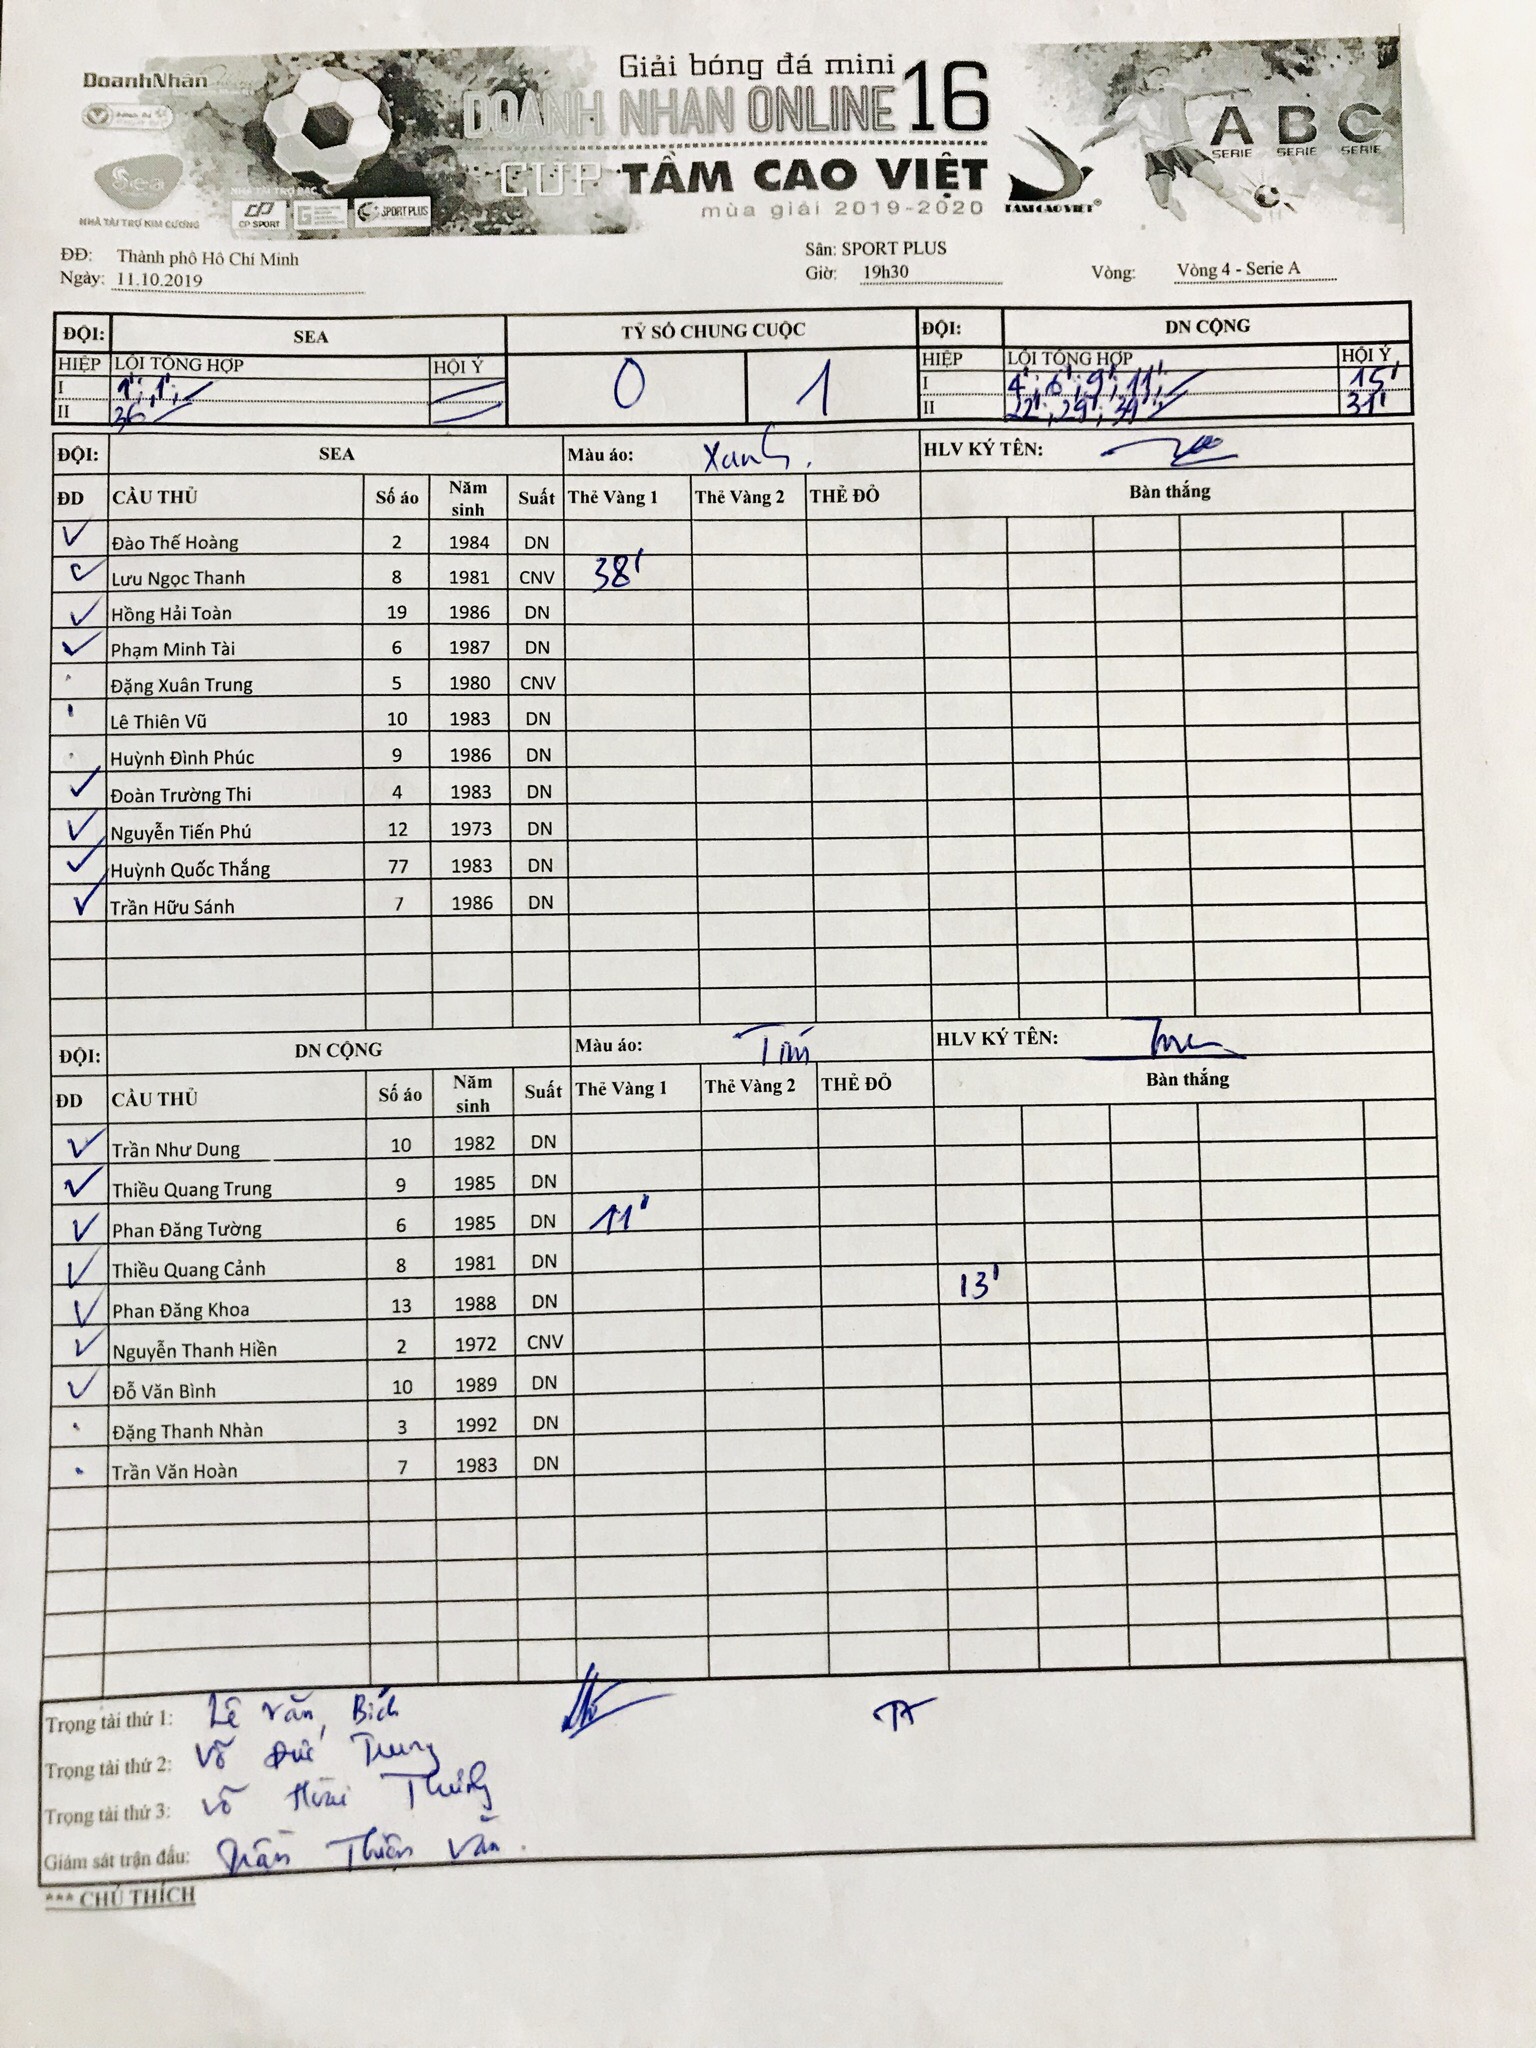 DoanhNhân
Sea
NHÀ TÀI TRỢ KIM CƯƠNG
NHÀ TÀI TRỢ BẠC
CP SPORT
SPORT PLUS
Giải bóng đá mini
DOANH NHAN ONLINE 16
CUP TẦM CAO VIỆT
mùa giải 2019-2020
TAMCAOVIET®
A B C
SERIE SERIE SERIE
ĐĐ: Thành phố Hồ Chí Minh
Sân: SPORT PLUS
Ngày: 11.10.2019
Giờ: 19h30
Vòng: Vòng 4 - Serie A
ĐỘI: SEA TỶ SỐ CHUNG CUỘC ĐỘI: DN CỘNG
HIỆP LỖI TỔNG HỢP HỘI Ý 0 1 HIỆP LỖI TỔNG HỢP HỘI Ý
I 1'; 1'; I 4'; 6'; 9'; 11'; 15'
II 36' II 22'; 29'; 39' 31'
ĐỘI: SEA Màu áo: Xanh. HLV KÝ TÊN:
ĐD CẦU THỦ Số áo Năm sinh Suất Thẻ Vàng 1 Thẻ Vàng 2 THẺ ĐỎ Bàn thắng
Đào Thế Hoàng 2 1984 DN
Lưu Ngọc Thanh 8 1981 CNV 38'
Hồng Hải Toàn 19 1986 DN
Phạm Minh Tài 6 1987 DN
Đặng Xuân Trung 5 1980 CNV
Lê Thiên Vũ 10 1983 DN
Huỳnh Đình Phúc 9 1986 DN
Đoàn Trường Thi 4 1983 DN
Nguyễn Tiến Phú 12 1973 DN
Huỳnh Quốc Thắng 77 1983 DN
Trần Hữu Sánh 7 1986 DN
ĐỘI: DN CỘNG Màu áo: Tím HLV KÝ TÊN:
ĐD CẦU THỦ Số áo Năm sinh Suất Thẻ Vàng 1 Thẻ Vàng 2 THẺ ĐỎ Bàn thắng
Trần Như Dung 10 1982 DN
Thiều Quang Trung 9 1985 DN
Phan Đăng Tường 6 1985 DN 11'
Thiều Quang Cảnh 8 1981 DN
Phan Đăng Khoa 13 1988 DN 13'
Nguyễn Thanh Hiền 2 1972 CNV
Đỗ Văn Bình 10 1989 DN
Đặng Thanh Nhàn 3 1992 DN
Trần Văn Hoàn 7 1983 DN
Trọng tài thứ 1: Lê Văn Bích
Trọng tài thứ 2: Võ Đức Trung
Trọng tài thứ 3: Võ Hoài Thương
Giám sát trận đấu: Trần Thiện Văn.
*** CHÚ THÍCH